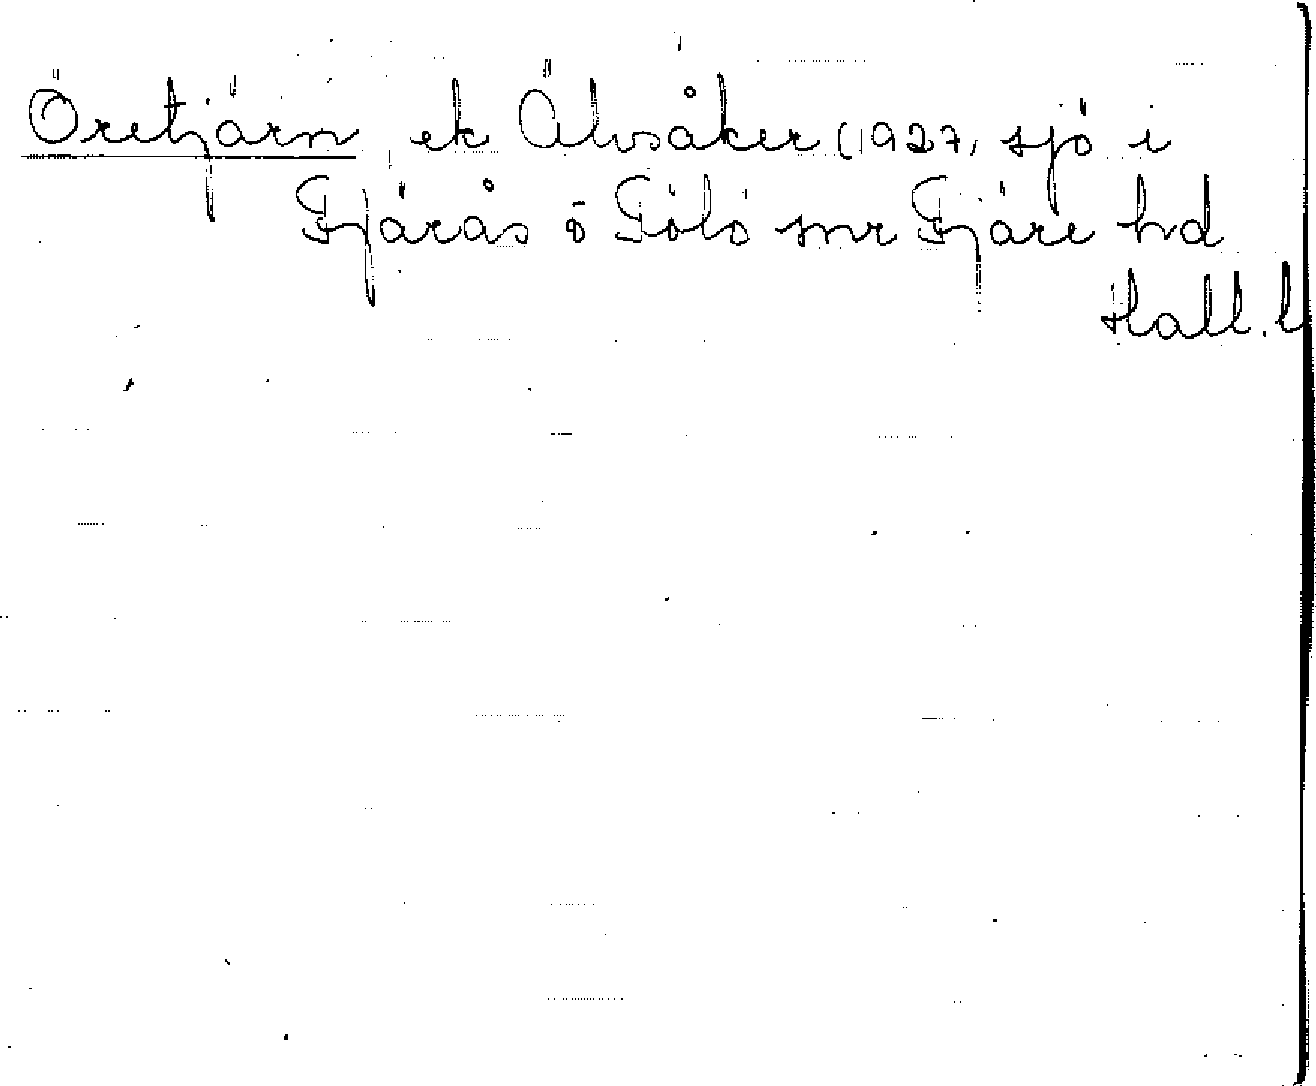 Öretjärn ek Älvsåker (1927, sjö i
Fjärås o Tölö snr Fjäre hd
Hall. l